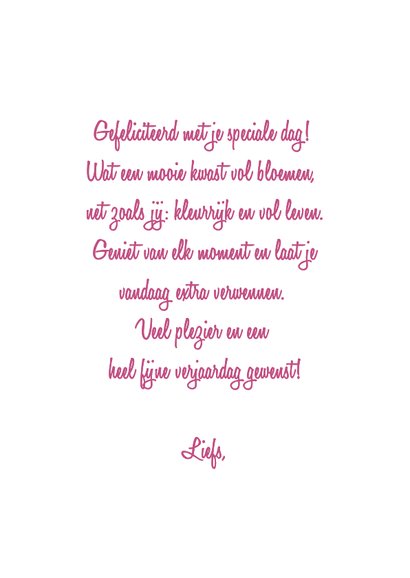 Gefeliciteerd met je speciale dag!
Wat een mooie kwast vol bloemen,
net zoals jij: kleurrijk en vol leven.
Geniet van elk moment en laat je
vandaag extra verwennen.
Veel plezier en een
heel fijne verjaardag gewenst!
Liefs,